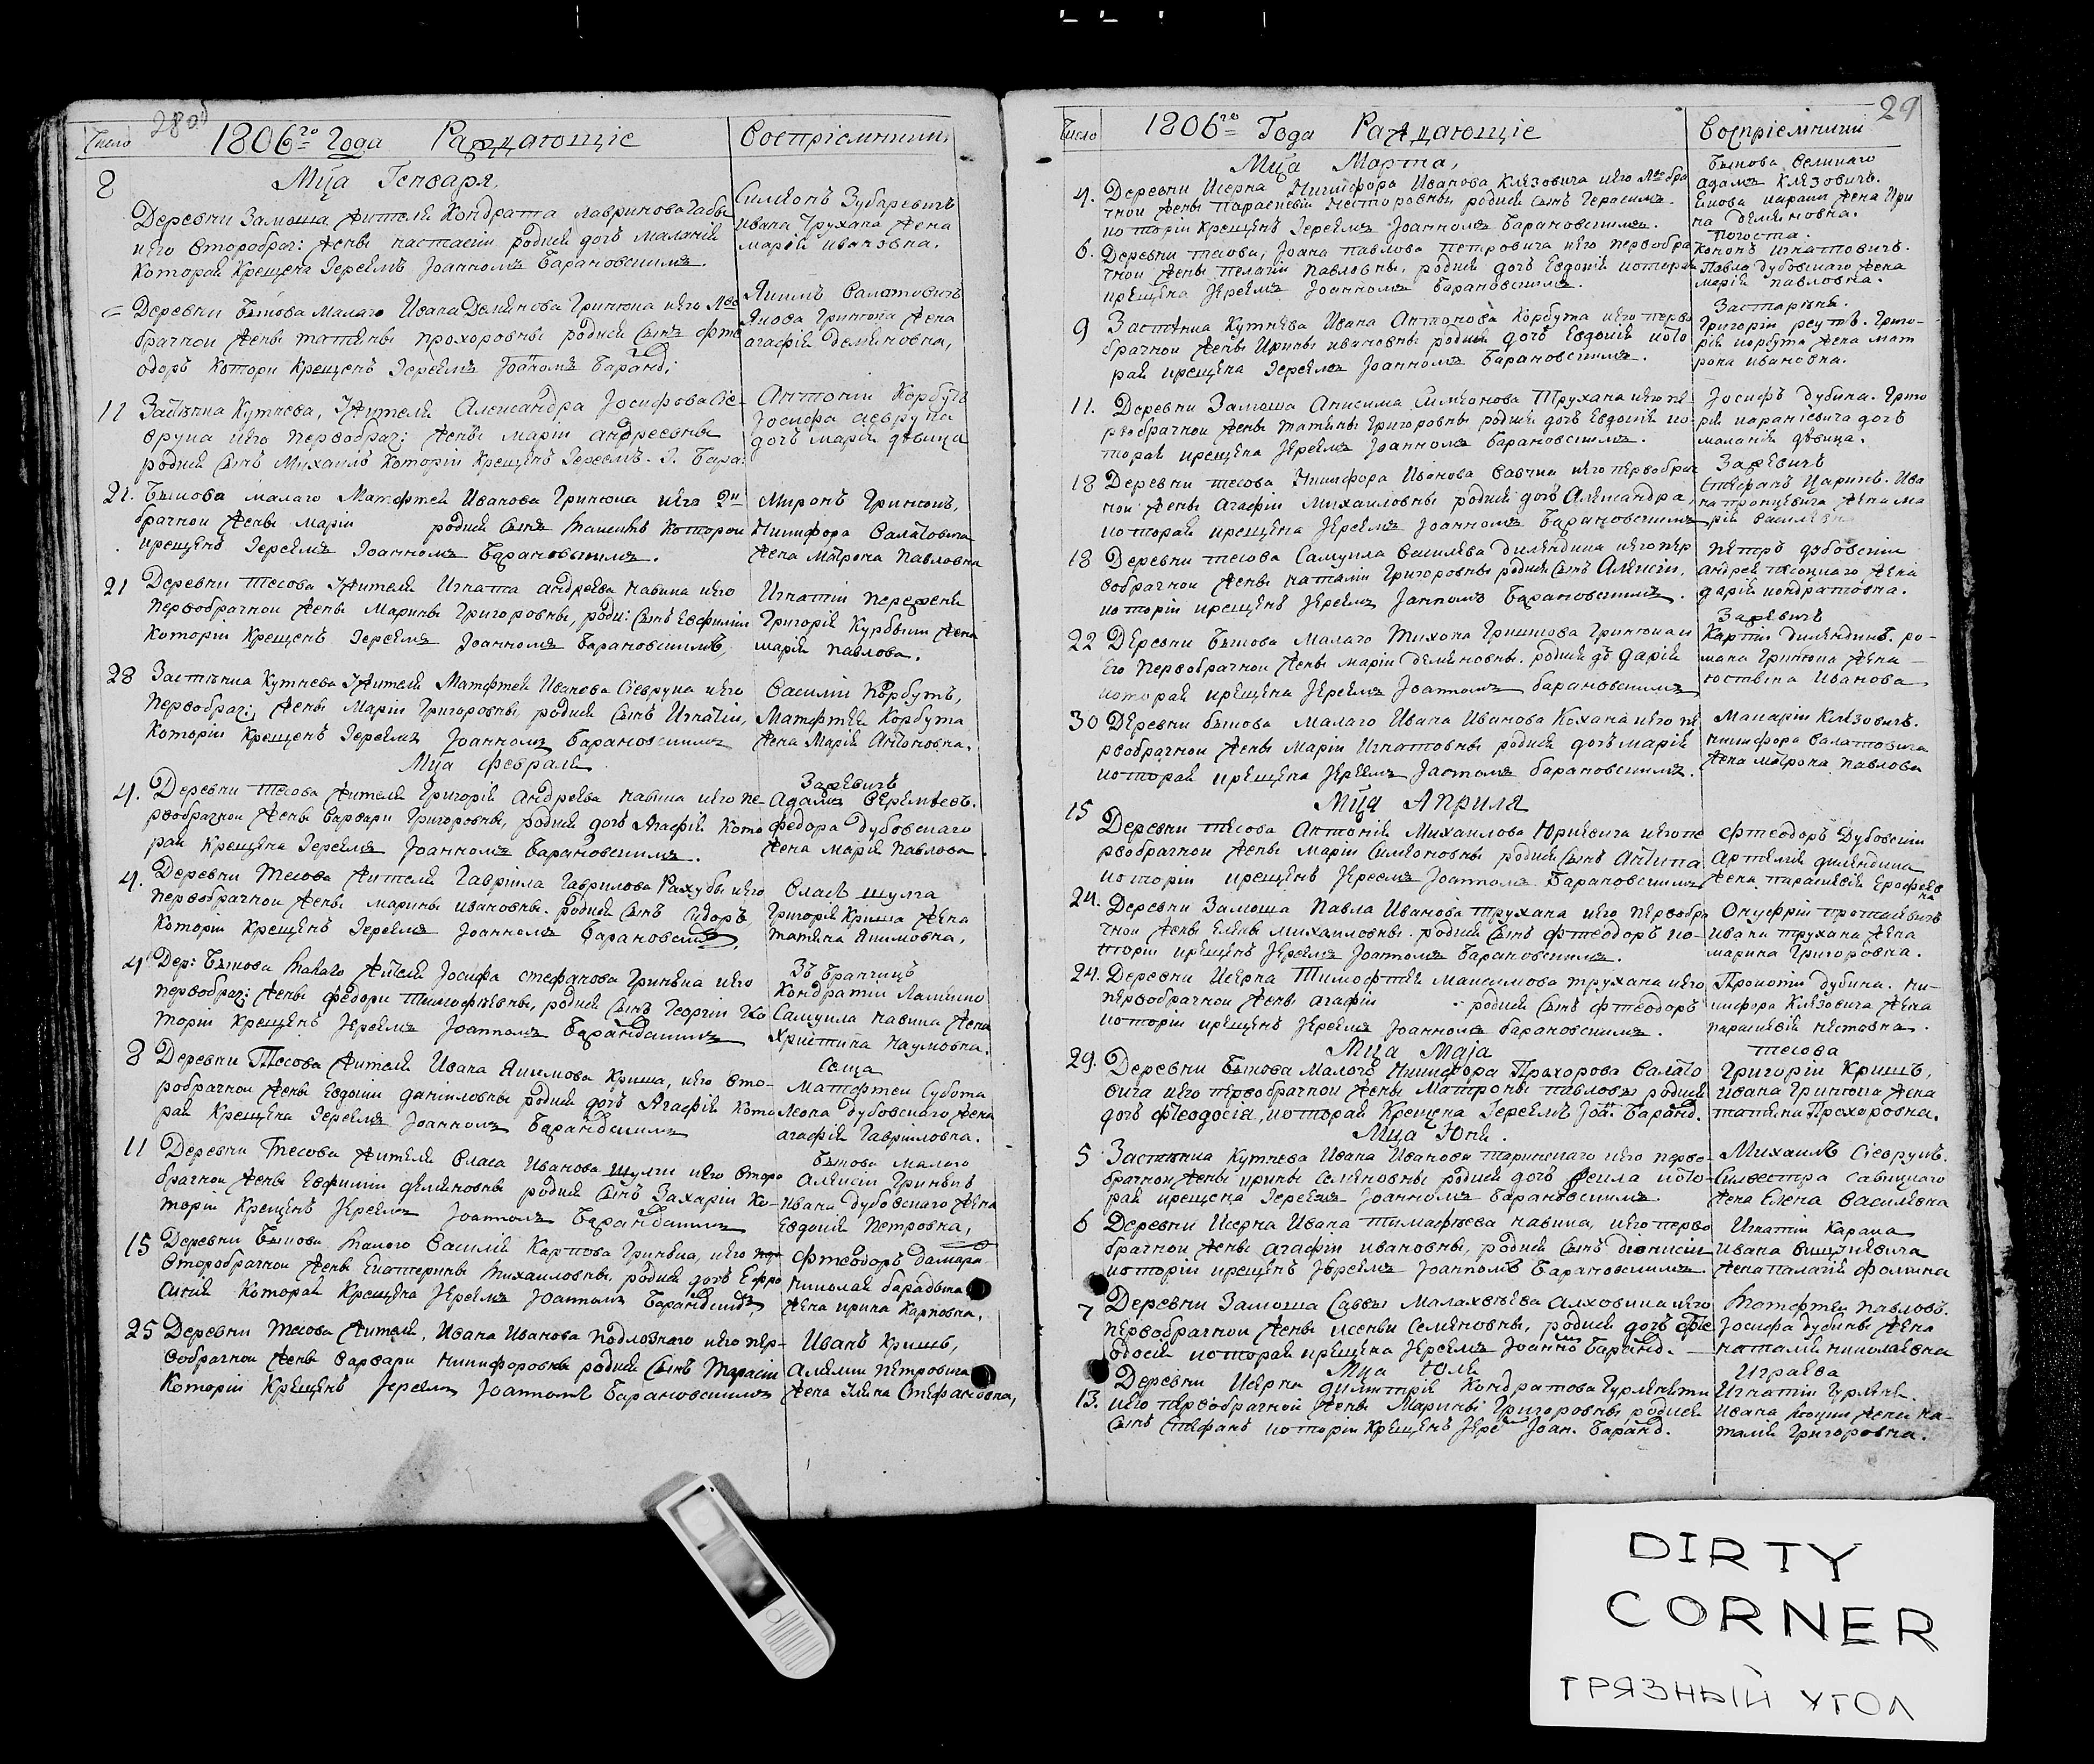 28об
Число 1806го Года Раждающіе Воспріемники
Мца Генваря
8
Деревни Замоша Жителя Кондрата Лавринова
и его второбрач: жены настасіи родися дочь Маланія
Которая Крещена Іереемъ Іоанномъ Барановскимъ
Симіонъ Зубаревичъ
ивана Трухана жена
марія ивановна.
Деревни Бытова Малаго Ивана Деміянова Гринюка и его
брачной жены татіяны прохоровны родися сынъ фте
одоръ Котори Крещенъ Іереемъ Іоанномъ Баранов:
Якимъ Салатовичъ
Якова Гринюка жена
агафія Деміяновна,
11 Застѣнка Кутнева, Жителя Александра Іосифова Сѣ-
врука и его первобрач: жены маріи андреевны
родися сынъ Михаилъ Которіи Крещенъ Іереемъ. І. Бара:
Антоніи Корбутъ
Іосифа
дочь марія дѣвица
21. Бытова малаго Матфтея Иванова Гринюка и его 2и
брачной жены маріи родися сынъ Которои
крещенъ Іереемъ Іоанномъ Барановскимъ.
Миронъ Гринюкъ,
Никифора Салатовича
жена Матрона Павловна
21 Деревни Тесова Жителя Игната андреева кавика и его
первобрачной жены Марины Григоровны, роди: сынъ Евфиміи
Которіи Крещенъ Іереемъ Іоанномъ Барановскимъ,
Игнатіи
Григорія Курбыки жена
марія павлова.
28 Застѣнка Кутнева Жителя Матфтея Иванова Сѣврука и его
первобрач; жены Маріи Григоровны, родися сынъ Игнатіи,
Которіи Крещенъ Іереемъ Іоанномъ Барановскимъ
Василіи Корбутъ,
Матфтея Корбута
жена Марія Антоновна.
Мца февраля
4. Деревни Тесова Жителя Григорія андреева кавика и его пе
рвобрачной жены варвари Григоровны, родися дочь Агафія Кото
рая Крещена Іереемъ Іоанномъ Барановскимъ.
Заревичъ
Адамъ
федора дубовскаго
жена Марія Павлова
4. Деревни Тесова Жителя Гавріила Гаврилова Рахубы и его
первобрачной жены марины ивановны. родися сынъ Сидоръ,
Которіи Крещенъ Іереемъ Іоанномъ Барановским,
Власъ шулга
Григорія Криша жена
татяна Якимовна,
4 Дер: Бытова малаго Жителя Іосифа стефанова Гринюка и его
первобрач; жены федори Тимофѣевны, родися сынъ Георгіи Ко
торіи Крещенъ Іереемъ Іоанномъ Барановскимъ
Кондратіи
Самуила кавика жена
Христина наумовна.
8 Деревни Тесова Жителя Ивана Якимова Криша, и его вто-
робрачной жены Евдокіи даниловны родися дочь Агафія Кото
рая Крещена Іереемъ Іоанномъ Барановскимъ
Матфтеи Субота
Леона дубовскаго жена
агафія Гавриіловна.
11 Деревни Тесова Жителя Власа Иванова шулги и его второ
брачной жены Евфиміи деміяновны родися сынъ Захаріи Ко-
торіи Крещенъ Іереемъ Іоанномъ Барановскимъ
Бытова малого
Алексіи Гринюкъ
ивана дубовскаго жена
Евдокія Петровна,
15 Деревни Бытова малого Василія Карпова Гринюка, и его
второбрачной жены Екатерины михаиловны, родися дочь Ефро
синія Которая Крещена Іереемъ Іоанномъ Барановским,
Фтеодоръ
николая
жена ирина карповна,
25 Деревни Тесова Жителя, Ивана Иванова подлознаго и его пер-
вобрачной жены варвари никифоровны родися сынъ Тарасіи
Которіи Крещенъ Іереемъ Іоанномъ Барановскимъ
Иванъ Кришъ,
Алексія Петровича
жена Стефановна,
29
Число 1806го Года Раждающіе Воспріемники
Мца Марта,
4. Деревни Исерна Никифора Иванова Клязовича и его
чной жены параскевіи несторовны родися сынъ Герасимъ.
которіи крещенъ Іереемъ Іоанномъ Барановскимъ.
Бытова великаго
адамъ Клязовичъ.
жена Ири
на деміяновна.
6. Деревни тесова, Іоана павлова петровича и его первобра
чной жены пелагіи павловны, родися дочь Евдокія которая
крещена Іереемъ Іоанномъ Барановскимъ.
погоста.
Кононъ игнатовичъ.
Павла дубовскаго жена
марія павловна.
9 Застѣнка Кутнева Ивана Антонова Корбута и его перво
брачной жены Ирины ивановны родися дочь Евдокія кото
рая крещена Іереемъ Іоанномъ Барановскимъ.
Григоріи реутъ. Григо-
рія корбута жена мат
рона ивановна.
11. Деревни Замоша Анисима Симіонова Трухана и его пе
рвобрачной жены татяны Григоровны родися дочь Евдокія ко-
торая крещена Іереемъ Іоанномъ Барановскимъ.
Іосифъ дубина. Григо
рія дочь
маланія дѣвица.
18 Деревни тесова Никифора Иванова Савчица и его первобрач
ной жены Агафіи Михаиловны родися дочь Александра,
которая крещена Іереемъ Іоанномъ Барановскимъ
Заревичъ
Стефанъ Царикъ. Ива
на жена ма
рія
18 Деревни тесова Самуила василева и его пер
вобрачной жены наталіи Григоровны родися сынъ Алексіи,
которіи крещенъ Іереемъ Іанномъ Барановскимъ.
петръ дубовскіи
андрея жена
дарія кондратовна.
22 Деревни Бытова Малаго Тихона Гришкова Гринюка и
его первобрачной жены маріи деміяновны. родися дъ дарія
которая крещена Іереемъ Іоанномъ барановскимъ
Заревичъ
Карпіи . ро-
мана Гринюка жена
юстина Иванова
30 Деревни бытова малаго Ивана Иванова Кохана и его пе
рвобрачной жены Маріи Игнатовны родися дочь марія
которая крещена Іереемъ Іастомъ барановскимъ.
Макаріи Клязовичъ.
никифора Салатовича
жена матрона павлова
Мца Априля
15 Деревни тесова Антонія Михаилова Юркевича и его пе
рвобрачной жены Маріи Симіоновны родися сынъ Антипа
которіи крещенъ Іереемъ Іоанномъ Барановскимъ
фтеодоръ дубовскіи
Артемія
жена параскевія Ерофѣев
на
24. Деревни Замоша Павла Иванова трухана и его первобра
чной жены Елены михаиловны. родися сынъ фтеодоръ ко-
торіи крещенъ Іереемъ Іоанномъ Барановскимъ.
Онуфріи
ивана трухана жена
марина Григоровна.
24. Деревни Исерна Тимофтея максимова трухана и его
первобрачной жены агафіи родися сынъ фтеодоръ
которіи крещенъ Іереемъ Іоанномъ барановскимъ.
Прокопіи дубина. ни-
кифора Клязовича жена
параскевія
Мца Маja
29. Деревни Бытова Малого Никифора Прохорова Салато
вича и его первобрачной жены Матроны павловы родися
дочь фтеодосія, которая Крещена Іереемъ Іоа. Баранов.
тесова
Григоріи Кришъ,
ивана Гринюка жена
татяна Прохоровна.
Мца Юня.
5 Застѣнка Кутнева Ивана Иванова и его перво-
брачной жены ирины Семіяновны родися дочь кото-
рая крещена Іереемъ Іоанномъ Барановскимъ
Михаилъ Сѣврукъ.
Силвестра Савицкаго
жена Елена Василевна
6 Деревни Исерна Ивана тимафѣева кавика, и его перво
брачной жены агафіи ивановны, родися сынъ діонисіи
которіи крещенъ Іереемъ Іоанномъ Барановскимъ.
Игнатіи Карака
Ивана
жена палагія фомина
7 Деревни Замоша Саввы Малахвѣева Алховика и его
первобрачной жены ксеніи Семіяновны, родися дочь Фте
одосія которая крещена Іереемъ Іоанно Баранов.
Матфтеи павловъ.
Іосифа дубины жена
наталія николаевна
Мца Юля
13. Деревни Исерна димитрія Кондратова
и его первобрачной жены Марины Григоровны родися
сынъ Стефанъ которіи Крещенъ Іере Іоан. Баранов.
Играева
Игнатіи
ивана жена на-
талія Григоровна.
DIRTY
CORNER
ГРЯЗНЫЙ УГОЛ